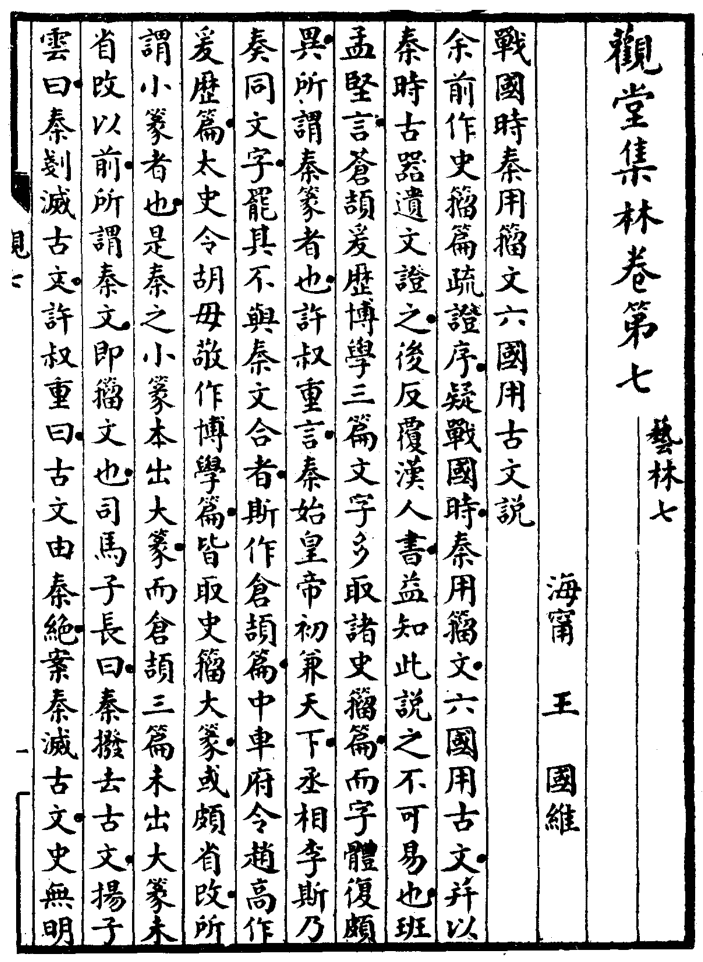 觀堂集林卷第七
藝林七
海甯 王 國維
戰國時秦用籀文六國用古文說
余前作史籀篇疏證序疑戰國時秦用籀文六國用古文并以
秦時古器遺文證之後反覆漢人書益知此說之不可易也班
孟堅言蒼頡爰歷博學三篇文字多取諸史籀篇而字體復頗
異所謂秦篆者也許叔重言秦始皇帝初兼天下丞相李斯乃
奏同文字罷其不與秦文合者斯作倉頡篇中車府令趙高作
爰歷篇太史令胡毋敬作博學篇皆取史籀大篆或頗省改所
謂小篆者也是秦之小篆本出大篆而倉頡三篇未出大篆未
省改以前所謂秦文即籀文也司馬子長曰秦撥去古文揚子
雲曰秦剗滅古文許叔重曰古文由秦絕案秦滅古文史無明
觀七
一